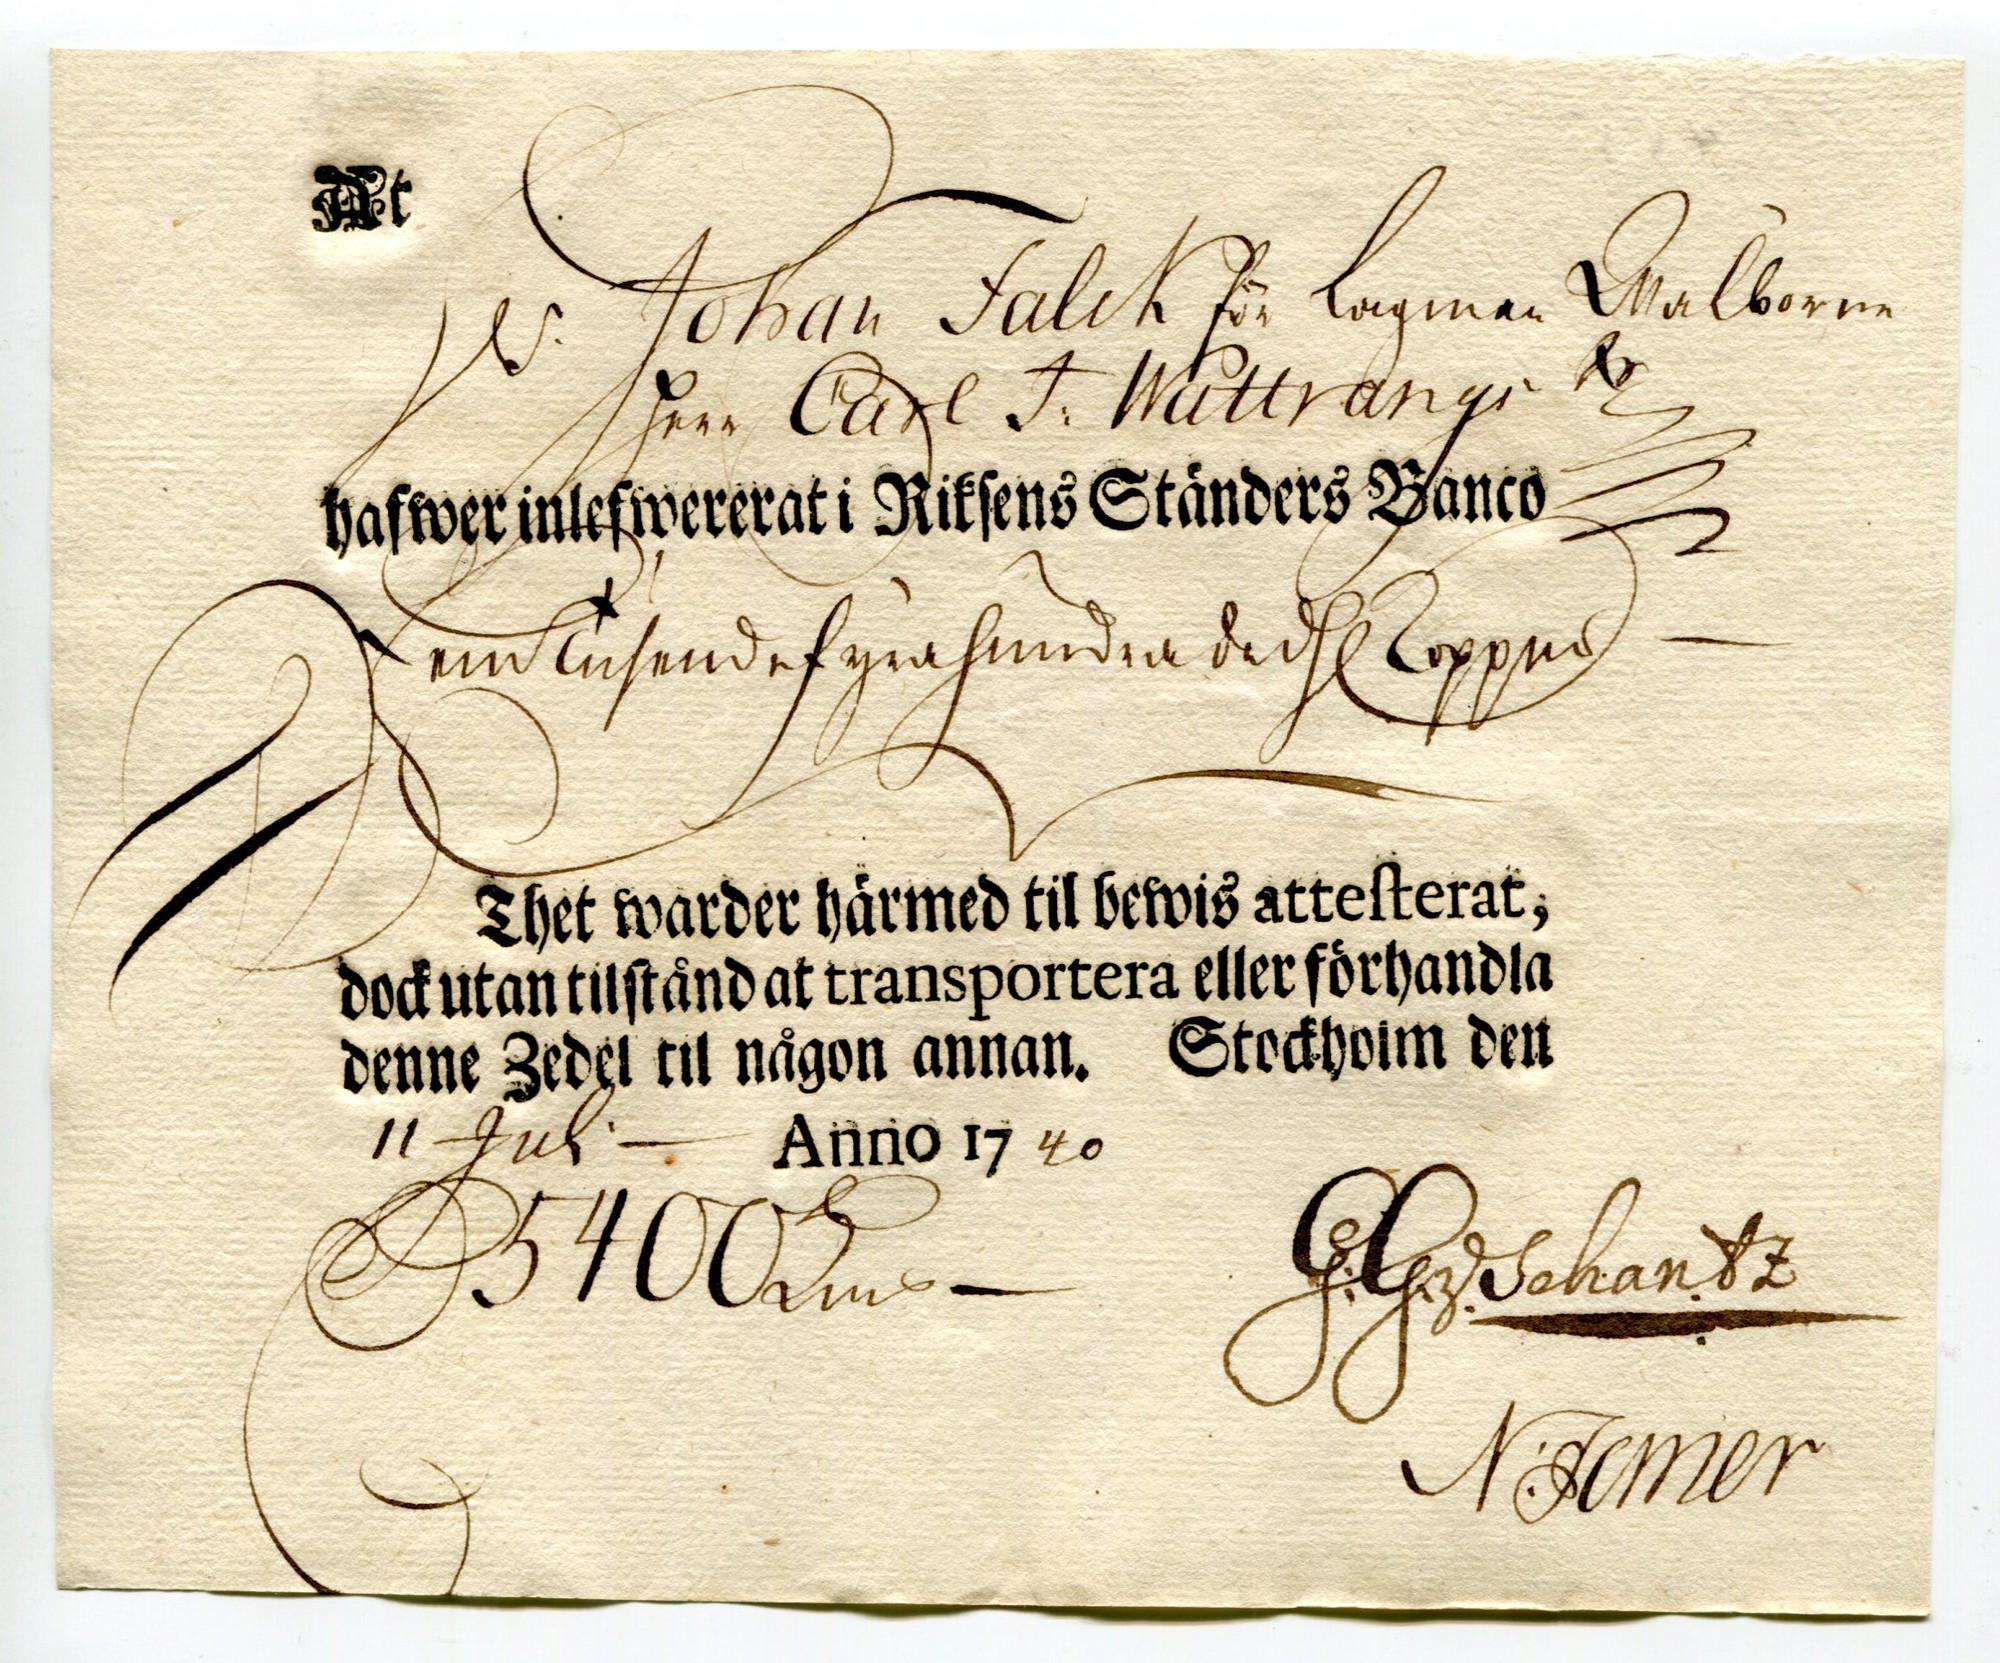 At
Johan Falck för Lagman Wälborne
Herr Carl F. Wattrangs
hafwer inlefwererat i Riksens Ständers Banco
Fem Tusende fyrahundra
Thet warder härmed til bewis attesterat,
dock utan tilstånd at transportera eller förhandla
denne Zedel til någon annan. Stockholm den
11 Juli Anno 1740
5400
G. G. v. Schantz
N. Femer